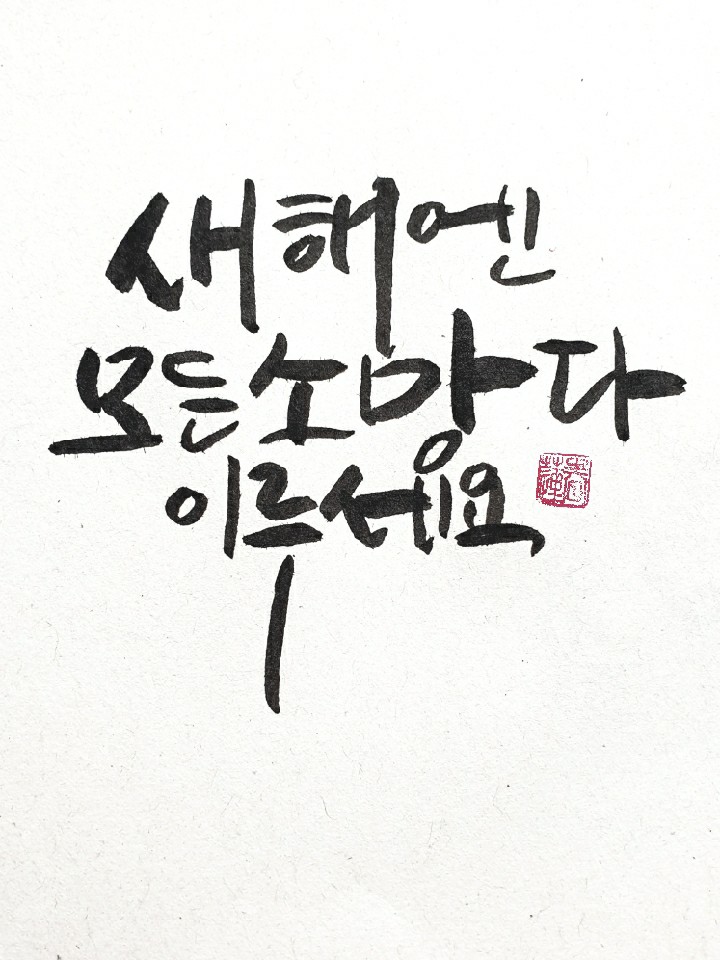 새해엔
모든소망다
이루세요